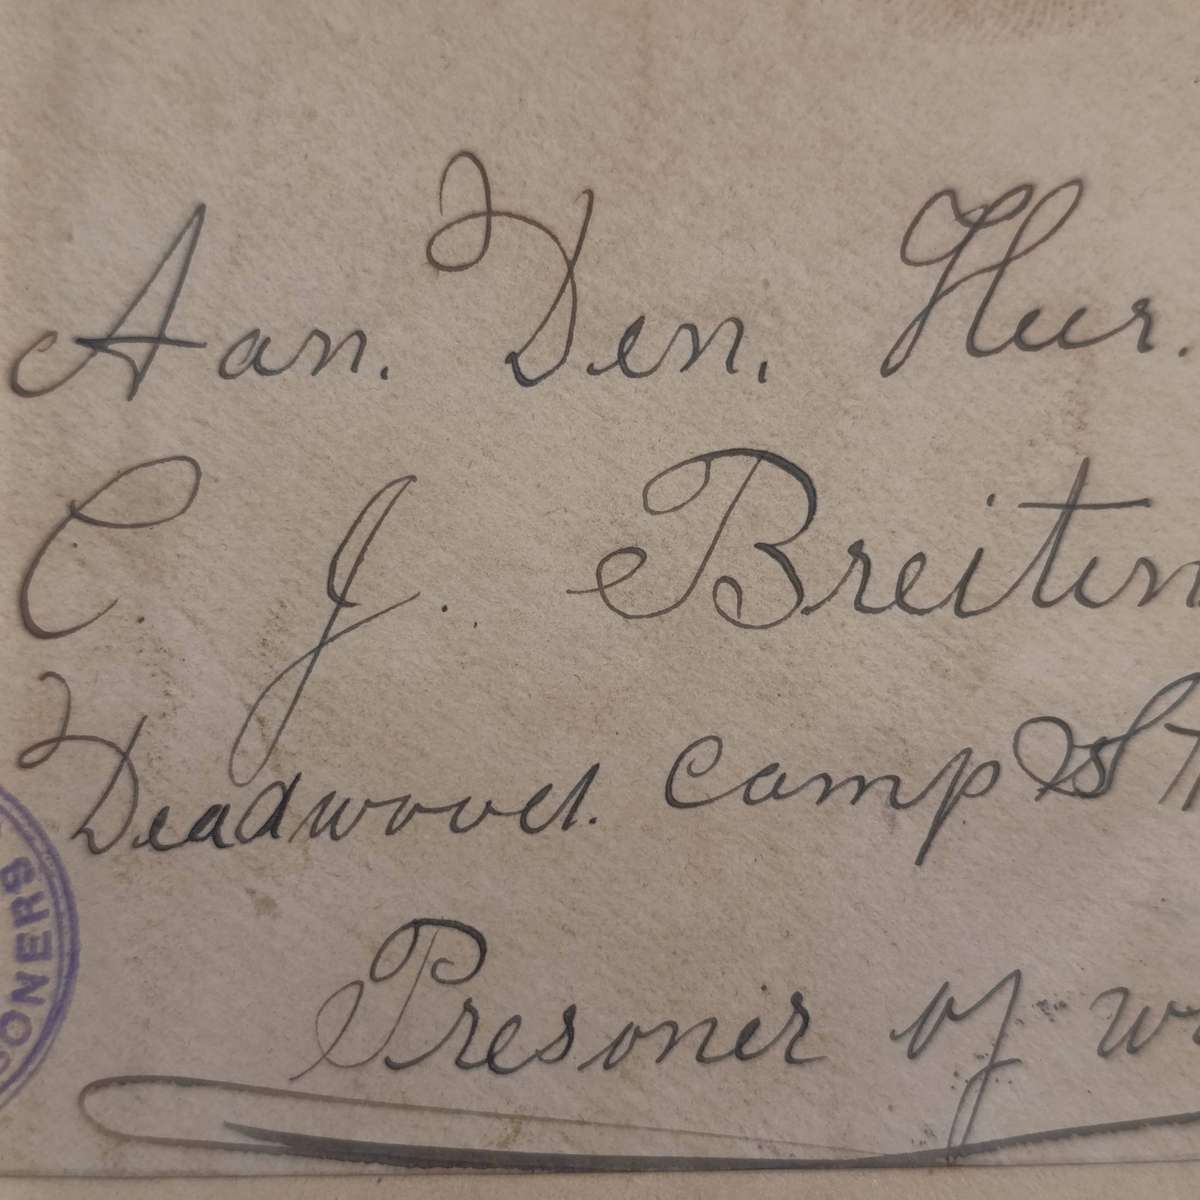 Aan. Den. Hur.
C. J. Breitin
Deadwood. Camp St H
Presoner of w
ONERS